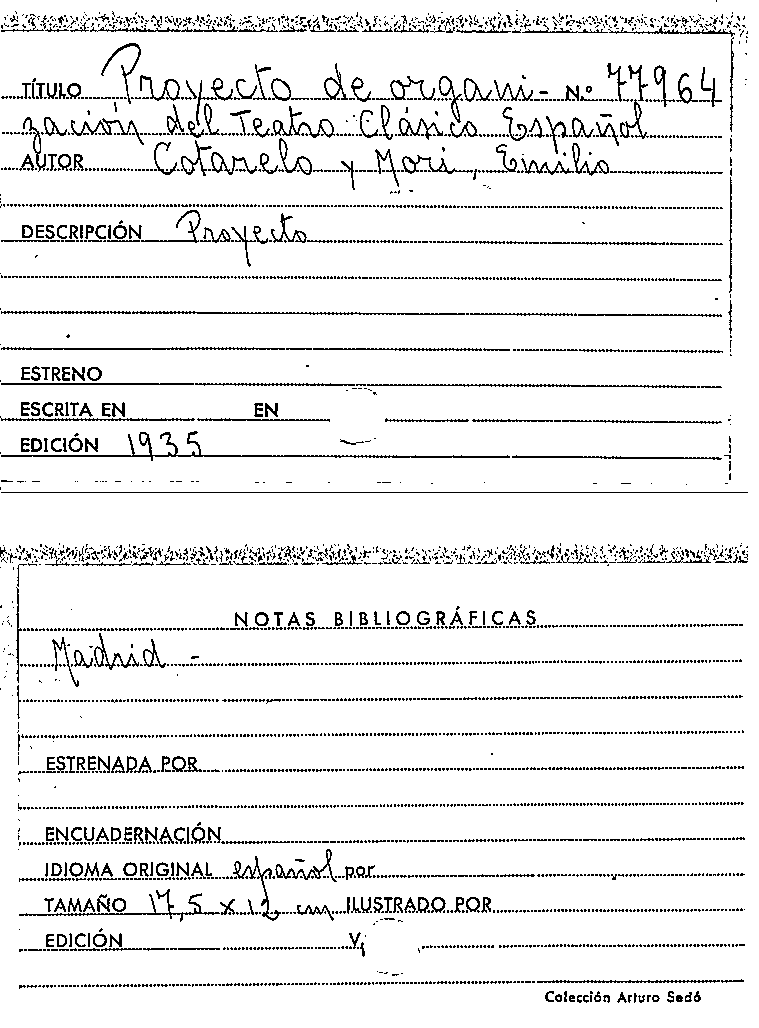 TÍTULO Proyecto de organi- N.º 77964
zación del Teatro Clásico Español
AUTOR Cotarelo y Mori, Emilio
DESCRIPCIÓN Proyecto
ESTRENO
ESCRITA EN EN
EDICIÓN 1935
NOTAS BIBLIOGRÁFICAS
Madrid -
ESTRENADA POR
ENCUADERNACIÓN
IDIOMA ORIGINAL español por
TAMAÑO 17,5 x 12 cm ILUSTRADO POR
EDICIÓN V,
Colección Arturo Sedó